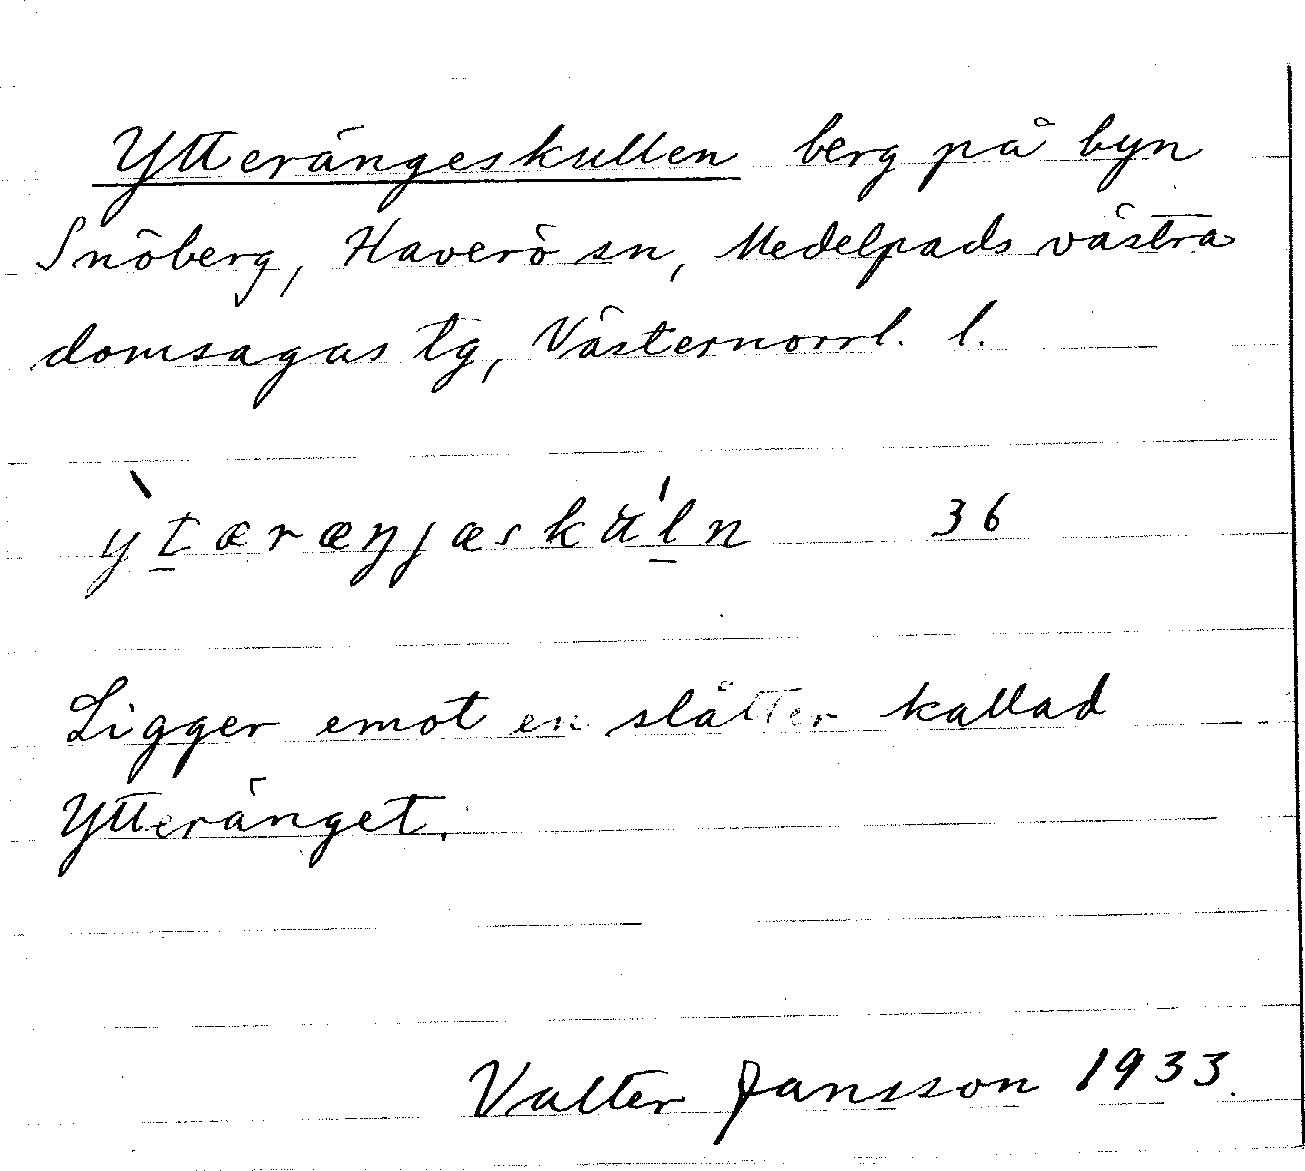 Ytterängeskullen berg på byn
Snöberg, Haverö sn, Medelpads västra
domsagas tg, Västernorrl. l.
ỳt̲æræŋjæskäl̲̍n 36
Ligger emot en slåtter kallad
Ytteränget.
Valter Jansson 1933.